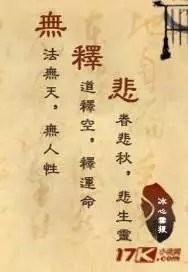 悲
眷悲秋，悲生靈
釋
道釋空，釋運命
無
法無天，無人性
冰心雲
17K小说网